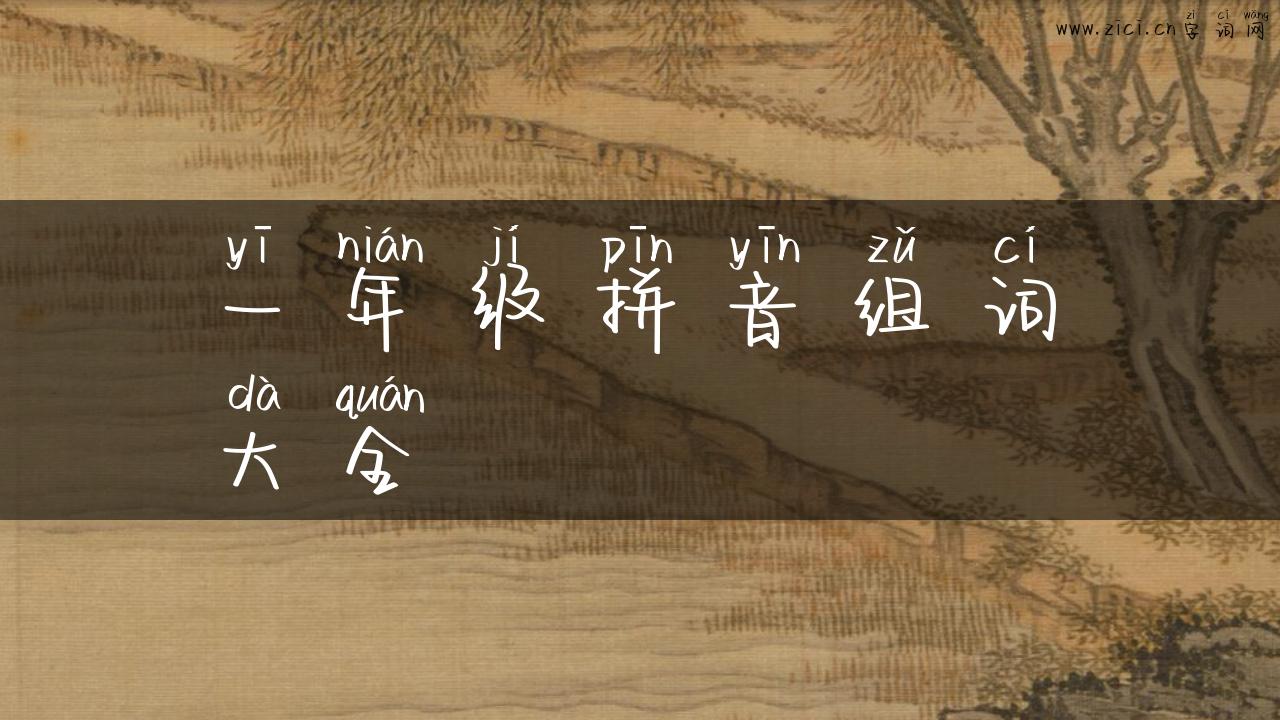 zì cí wǎng
www.zici.cn字词网
yī nián jí pīn yīn zǔ cí
一年级拼音组词
dà quán
大全